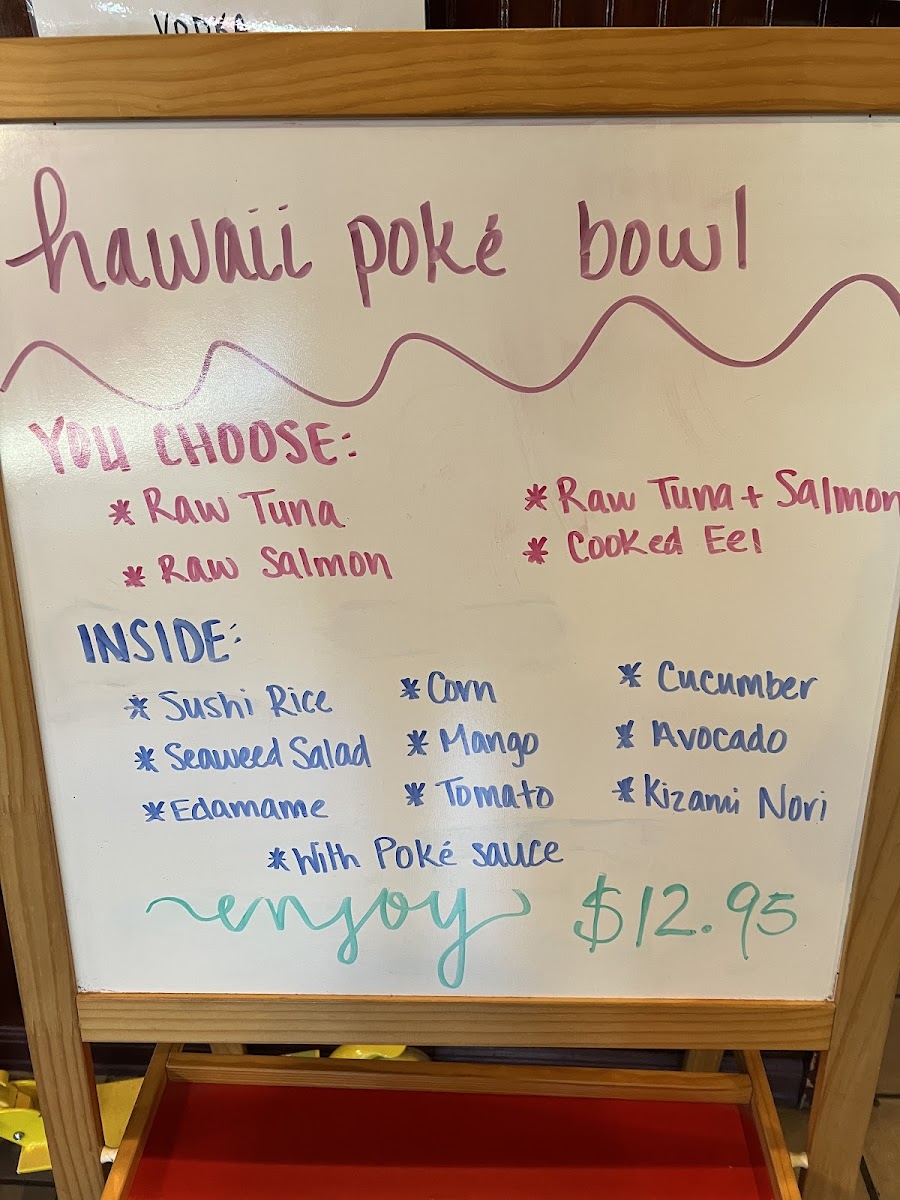 VODKA
hawaii poké bowl
YOU CHOOSE:
* Raw Tuna
* Raw Tuna + Salmon
* Raw Salmon
* Cooked Eel
INSIDE:
* Sushi Rice
* Corn
* Cucumber
* Seaweed Salad
* Mango
* Avocado
* Edamame
* Tomato
* Kizami Nori
* With Poké sauce
enjoy $12.95